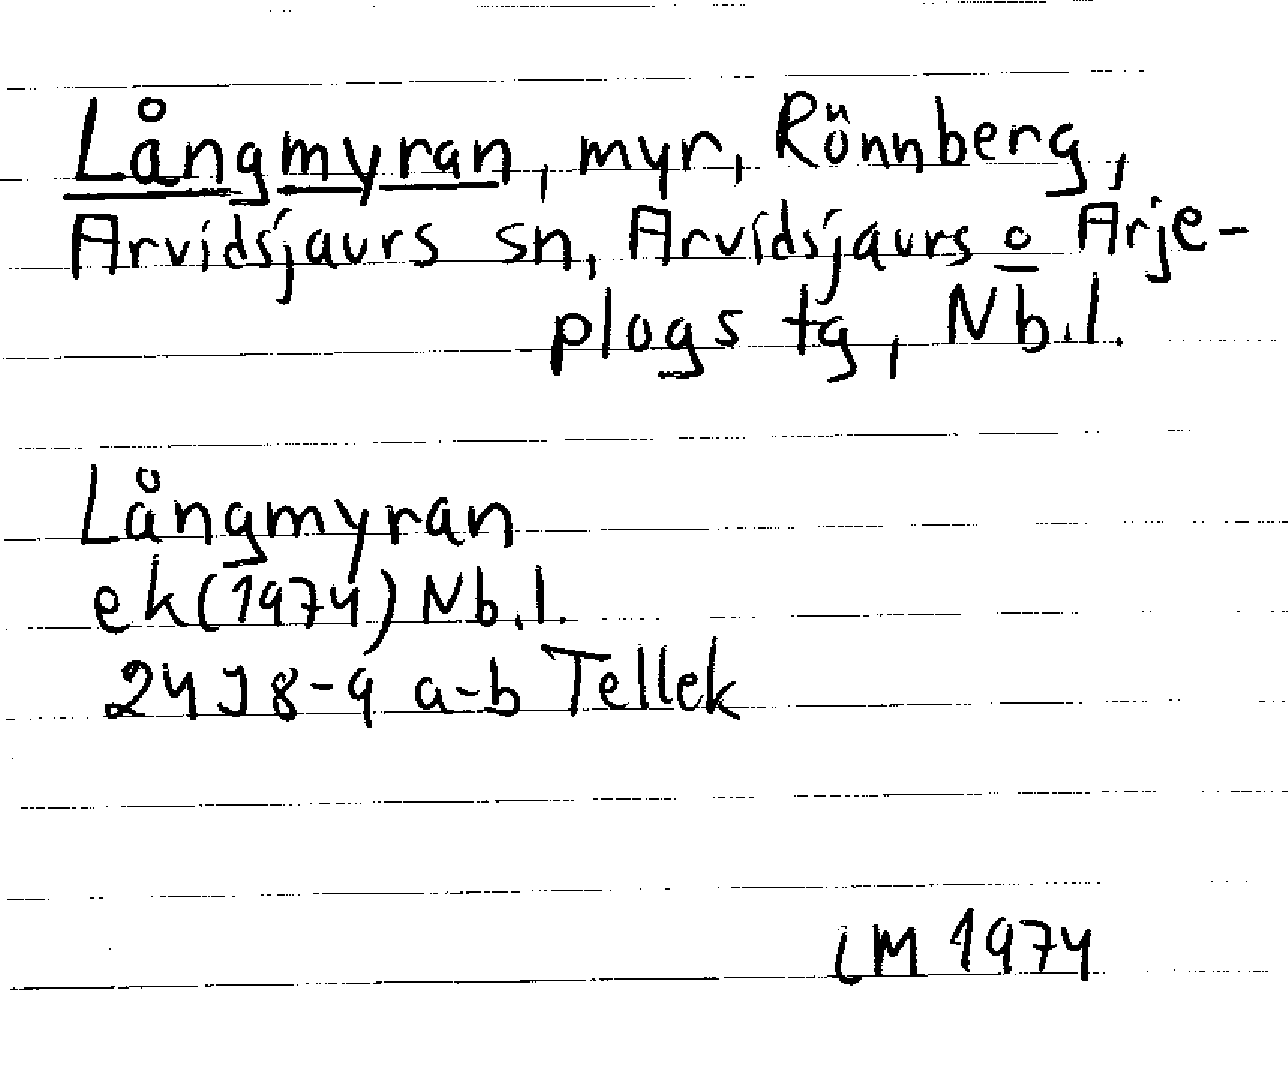 Långmyran, myr, Rönnberg,
Arvidsjaurs sn, Arvidsjaurs o Arje-
plogs tg, Nb.l.
Långmyran
ek (1974) Nb.l.
24J 8-9 a-b Tellek
LM 1974